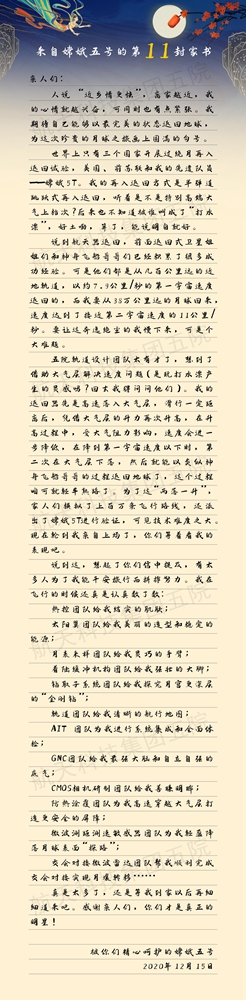 来自嫦娥五号的第11封家书
亲人们：
人说“近乡情更怯”，离家越近，我
的心情就越兴奋，可同时也有点紧张。我
期待自己能够以最完美的状态返回地球，
为这次珍贵的月球之旅画上圆满的句号。
世界上只有三个国家开展过绕月再入
返回试验，美国、前苏联和我的先遣队员
——嫦娥5T。我的再入返回方式是半弹道
跳跃式再入返回，听着是不是特别高端大
气上档次？后来也不知道被谁叫成了“打水
漂”，好土哟，算了，能说明白就好。
说到航天器返回，前面返回式卫星姐
姐们和神舟飞船哥哥们已经积累了很多成
功经验。可是他们都是从几百公里远的近
地轨道，以约7.9公里/秒的第一宇宙速度
返回的，而我要从38万公里远的月球回来，
速度达到了接近第二宇宙速度的11公里/
秒。要让这奔逸绝尘的我慢下来，可是个
大难题。
五院轨道设计团队太有才了，想到了
借助大气层解决速度问题（是玩打水漂产
生的灵感吗？回去我得问问他们）。我的
返回器先是高速落入大气层，滑行一定距
离后，凭借大气层的升力再次升高，在升
高过程中，受大气阻力影响，速度会进一
步降低，在降到第一宇宙速度以下时，第
二次在大气层下落，然后就能以类似神
舟飞船哥哥的过程返回地球了，这个过程
咱可就轻车熟路了。为了这“两落一升”，
家人们模拟了上百万条飞行路线，还派
出了嫦娥5T进行验证，可见技术难度之大。
现在轮到我亲自上场了，你们等着看我的
表现吧。
说到这，想起了你们信中提及，有太
多人为了我能平安旅行而拼搏努力。我在
飞行的时候还真是认真数了数：
热控团队给我结实的肌肤；
太阳翼团队给我美丽的造型和稳定的
能源；
月表采样团队给我灵巧的手臂；
着陆缓冲机构团队给我强壮的大脚；
钻取子系统团队给我探究月宫更深层
的“金刚钻”；
轨道团队给我清晰的航行地图；
AIT团队为我进行系统集成和全面体
检；
GNC团队给我最强大脑和自立自强的
底气；
CMOS相机研制团队给我善睐明眸；
防热涂层团队为我高速穿越大气层打
造更安全的屏障；
微波测距测速敏感器团队为我轻盈降
落月球表面“探路”；
交会对接微波雷达团队帮我顺利完成
交会对接实现月壤转移……
真是太多了，还是等我到家以后再细
细道来吧。感谢亲人们，你们才是真正的
明星！
被你们精心呵护的嫦娥五号
2020年12月15日
航天科技集团五院